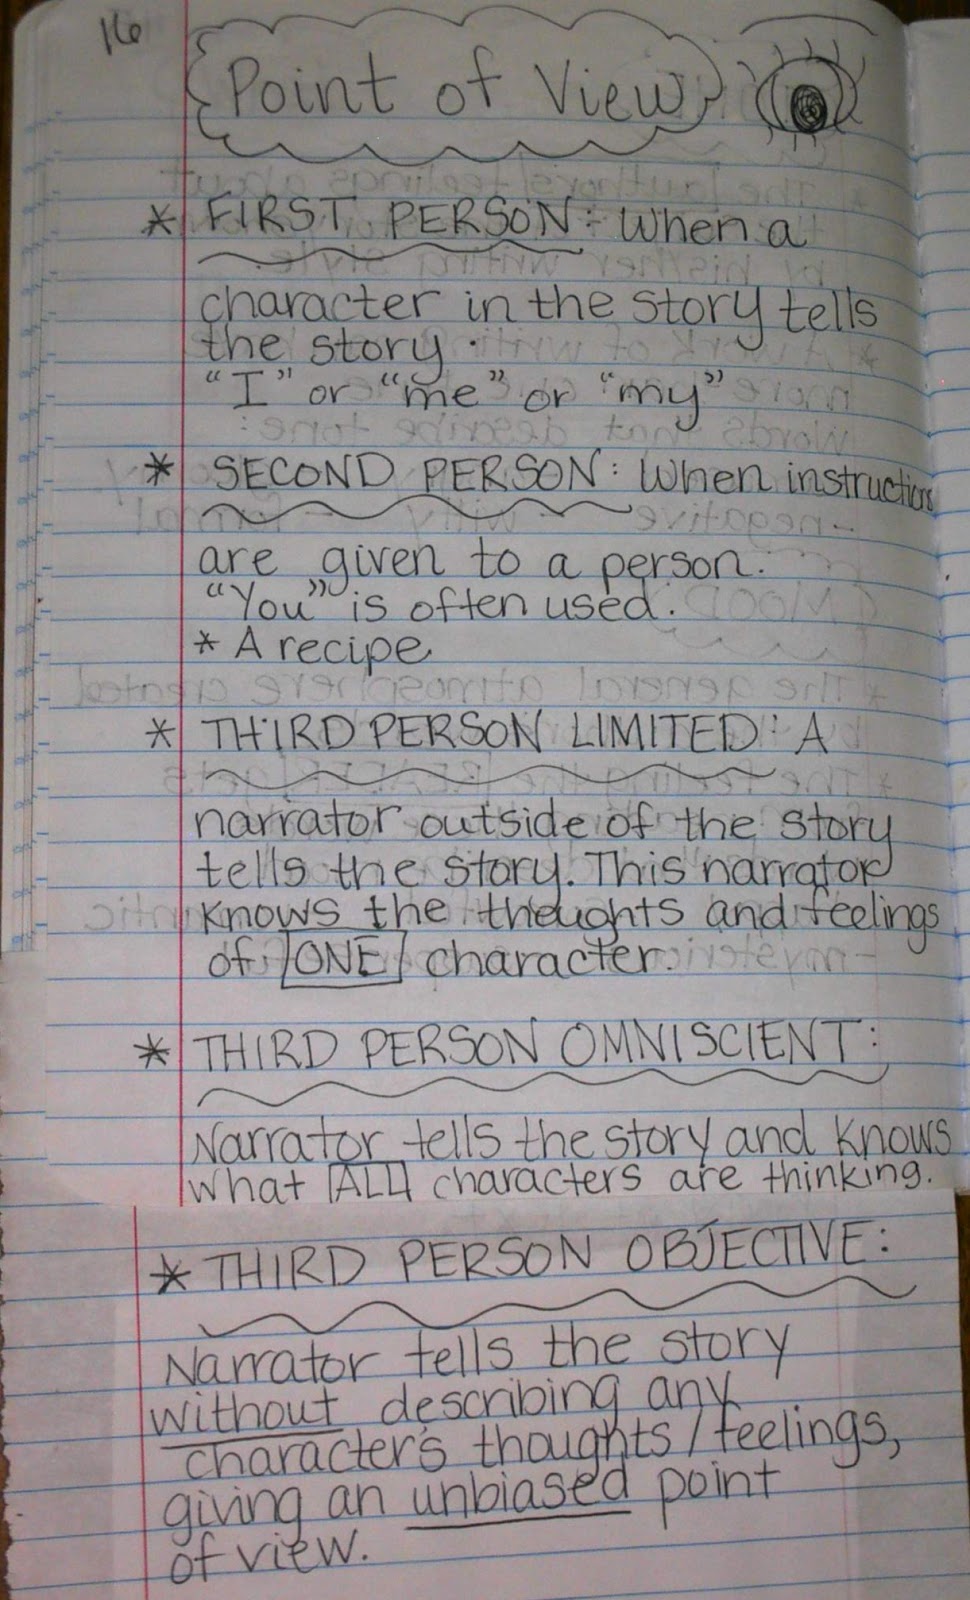 16
Point of View
* FIRST PERSON: When a
character in the story tells
the story.
"I" or "me" or "my"
* SECOND PERSON: When instructions
are given to a person.
"You" is often used.
* A recipe
* THIRD PERSON LIMITED: A
narrator outside of the story
tells the story. This narrator
knows the thoughts and feelings
of ONE character.
* THIRD PERSON OMNISCIENT:
Narrator tells the story and knows
what ALL characters are thinking.
* THIRD PERSON OBJECTIVE:
Narrator tells the story
without describing any
character's thoughts/feelings,
giving an unbiased point
of view.